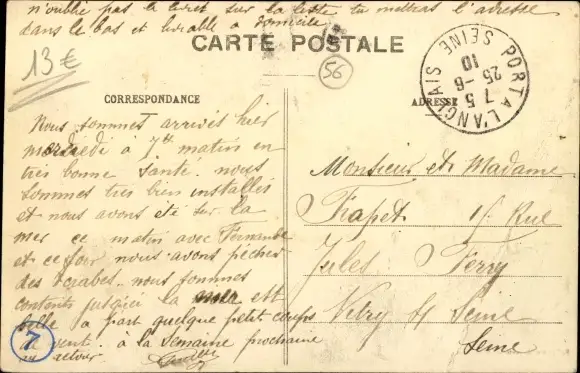 n'oublie pas le livret sur la liste tu mettras l'adresse
dans le bas et livrable a domicile
CARTE POSTALE
13 €
56
PORT A L'ANGLAIS
SEINE
7 5
25 - 6
10
CORRESPONDANCE
ADRESSE
Nous sommes arrivés hier
à 7h matin en
très bonne santé. nous
sommes tres bien installés
et nous avons été sur la
mer ce matin avec Fernande
et ce soir nous avons pêcher
des crabes. nous sommes
contents jusqu'ici la mer est
belle a part quelque petit coups
de vent. à la semaine prochaine
au retour
7
Monsieur et Madame
Frapet 15 Rue
Jules Ferry
Vitry s/ Seine
Seine